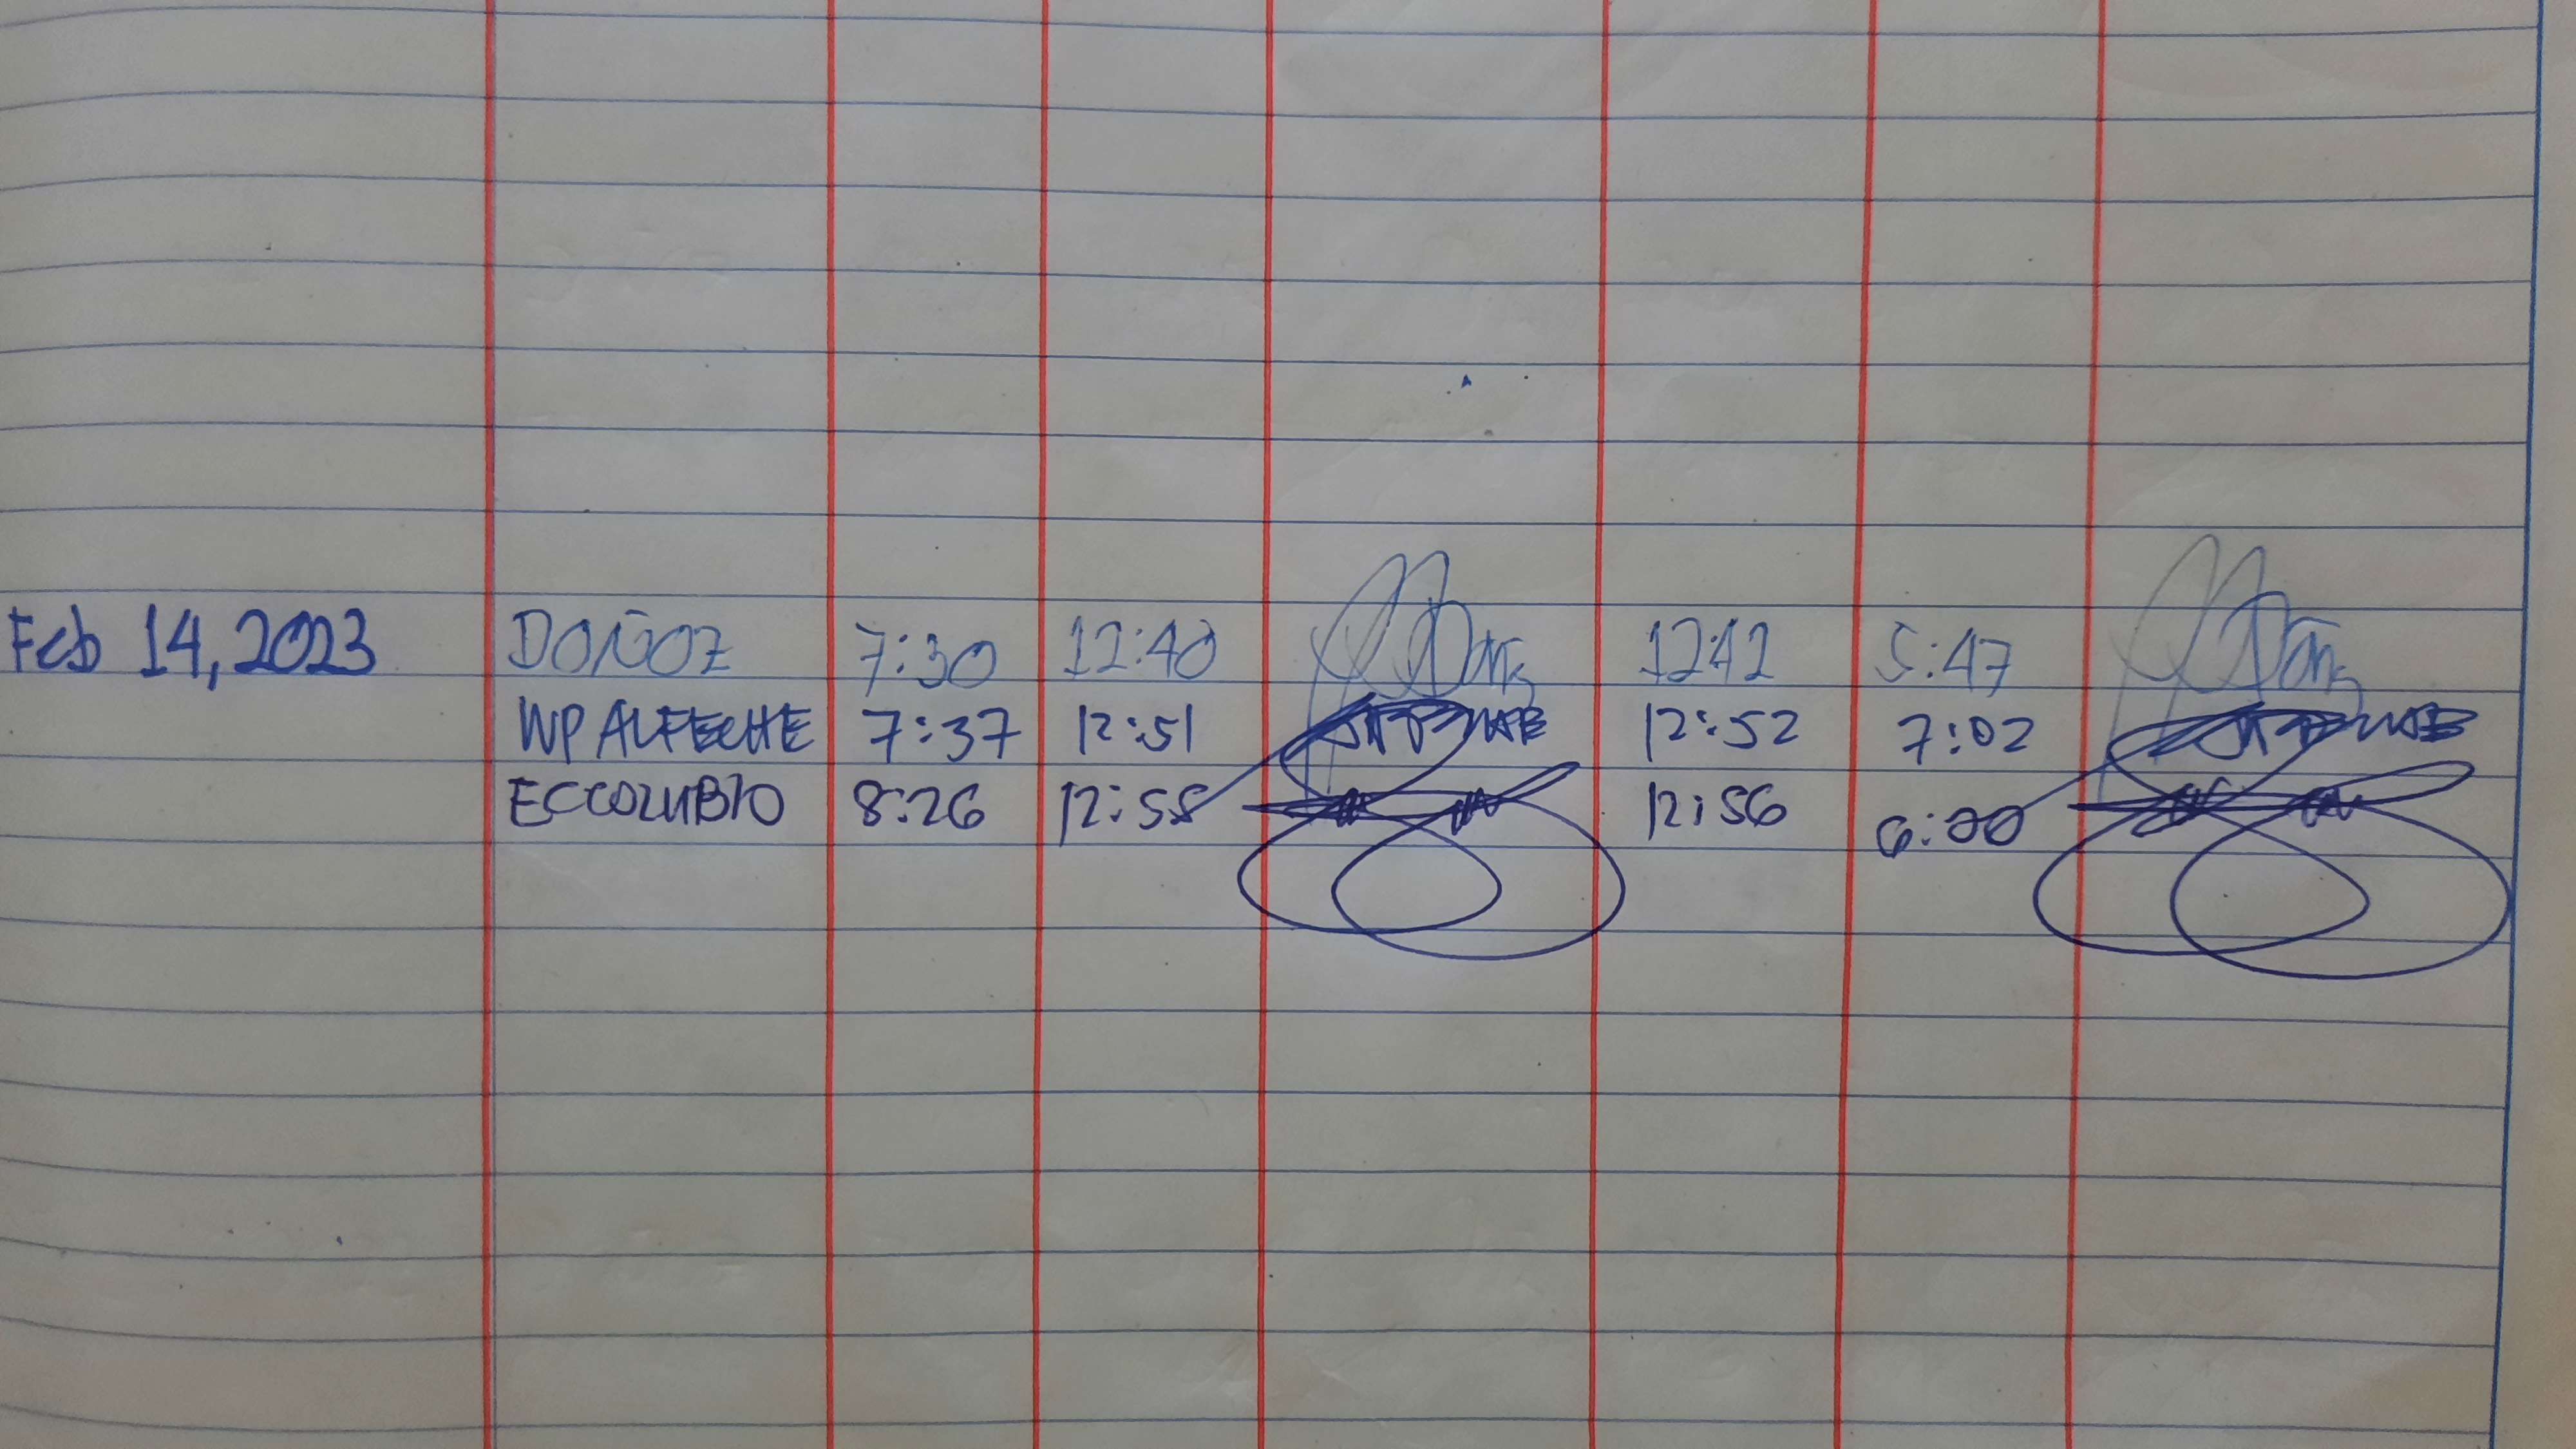 Feb 14, 2023 DOÑOZ 7:30 12:40 12:42 5:47
WP ALFECHE 7:37 12:51 12:52 7:02
ECCOLUBIO 8:26 12:55 12:56 6:00